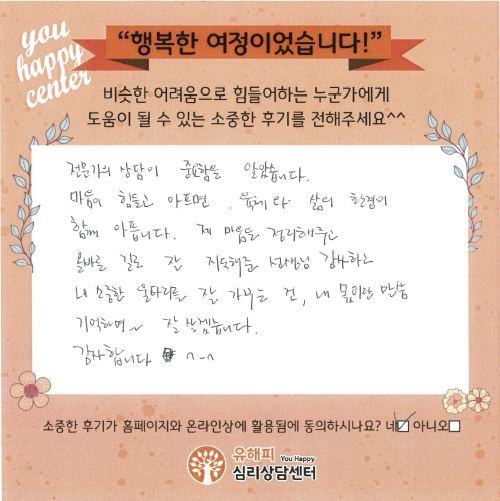 you
happy
center
“행복한 여정이었습니다!”
비슷한 어려움으로 힘들어하는 누군가에게
도움이 될 수 있는 소중한 후기를 전해주세요^^
전문가의 상담이 중요함을 알았습니다.
마음이 힘들고 아프면, 육체와 삶의 환경이
함께 아픕니다. 제 마음을 정리해주고
올바를 길로 잘 지도해준 선생님 감사하고
내 소중한 울타리를 잘 가꾸는 건, 내 몫이란 만큼
기억하며~ 잘 살겠습니다.
감사합니다 ^-^
소중한 후기가 홈페이지와 온라인상에 활용됨에 동의하시나요? 네☑ 아니오□
유해피 You Happy
심리상담센터